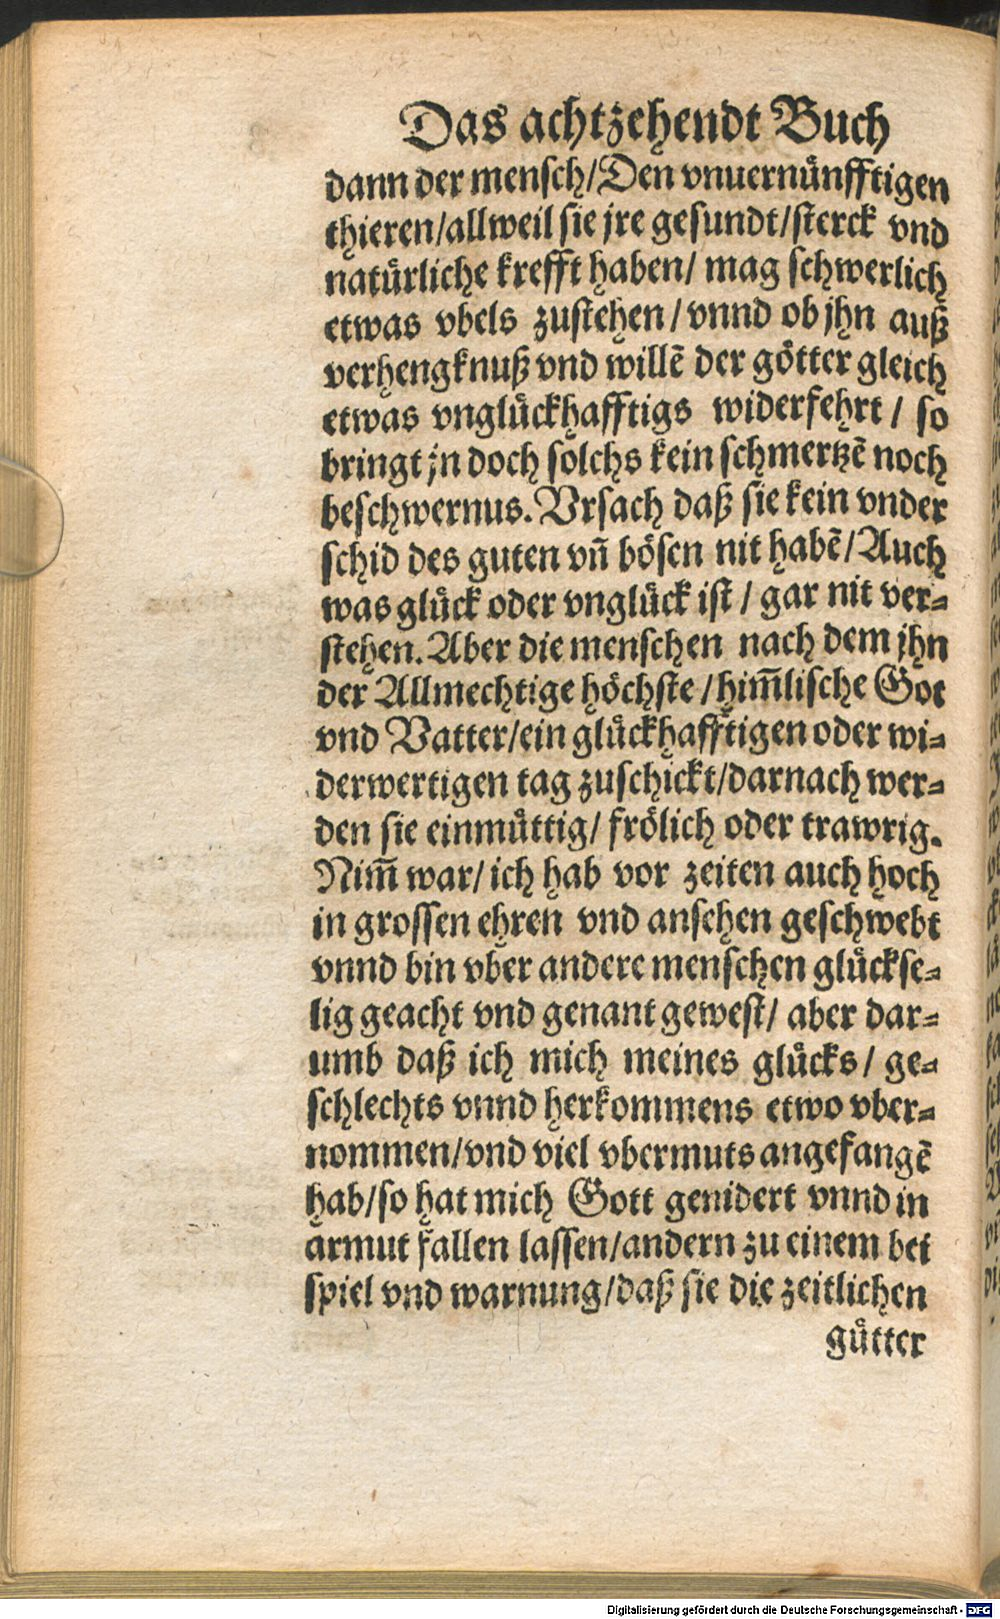 Das achtzehendt Buch
dann der mensch/Den vnuernuͤnfftigen
thieren/allweil sie jre gesundt/sterck vnd
natuͤrliche krefft haben/ mag schwerlich
etwas vbels zustehen/vnnd ob jhn auß
verhengknuß vnd willẽ der goͤtter gleich
etwas vngluͤckhafftigs widerfehrt / so
bringt jn doch soͤlchs kein schmertzẽ noch
beschwernus. Vrsach daß sie kein vnder
schid des guten vñ boͤsen nit habẽ/Auch
was gluͤck oder vngluͤck ist / gar nit ver-
stehen. Aber die menschen nach dem jhn
der Allmechtige hoͤchste/him̃lische Got
vnd Vatter/ein gluͤckhafftigen oder wi-
derwertigen tag zuschickt/darnach wer-
den sie einmuͤttig/ froͤlich oder trawrig.
Nim̃ war/ ich hab vor zeiten auch hoch
in grossen ehren vnd ansehen geschwebt
vnnd bin vber andere menschen gluͤckse-
lig geacht vnd genant gewest/ aber dar-
umb daß ich mich meines gluͤcks/ ge-
schlechts vnnd herkommens etwo vber-
nommen/vnd viel vbermuts angefangẽ
hab/so hat mich Gott genidert vnnd in
armut fallen lassen/andern zu einem bei
spiel vnd warnung/daß sie die zeitlichen
guͤtter
Digitalisierung gefördert durch die Deutsche Forschungsgemeinschaft - DFG